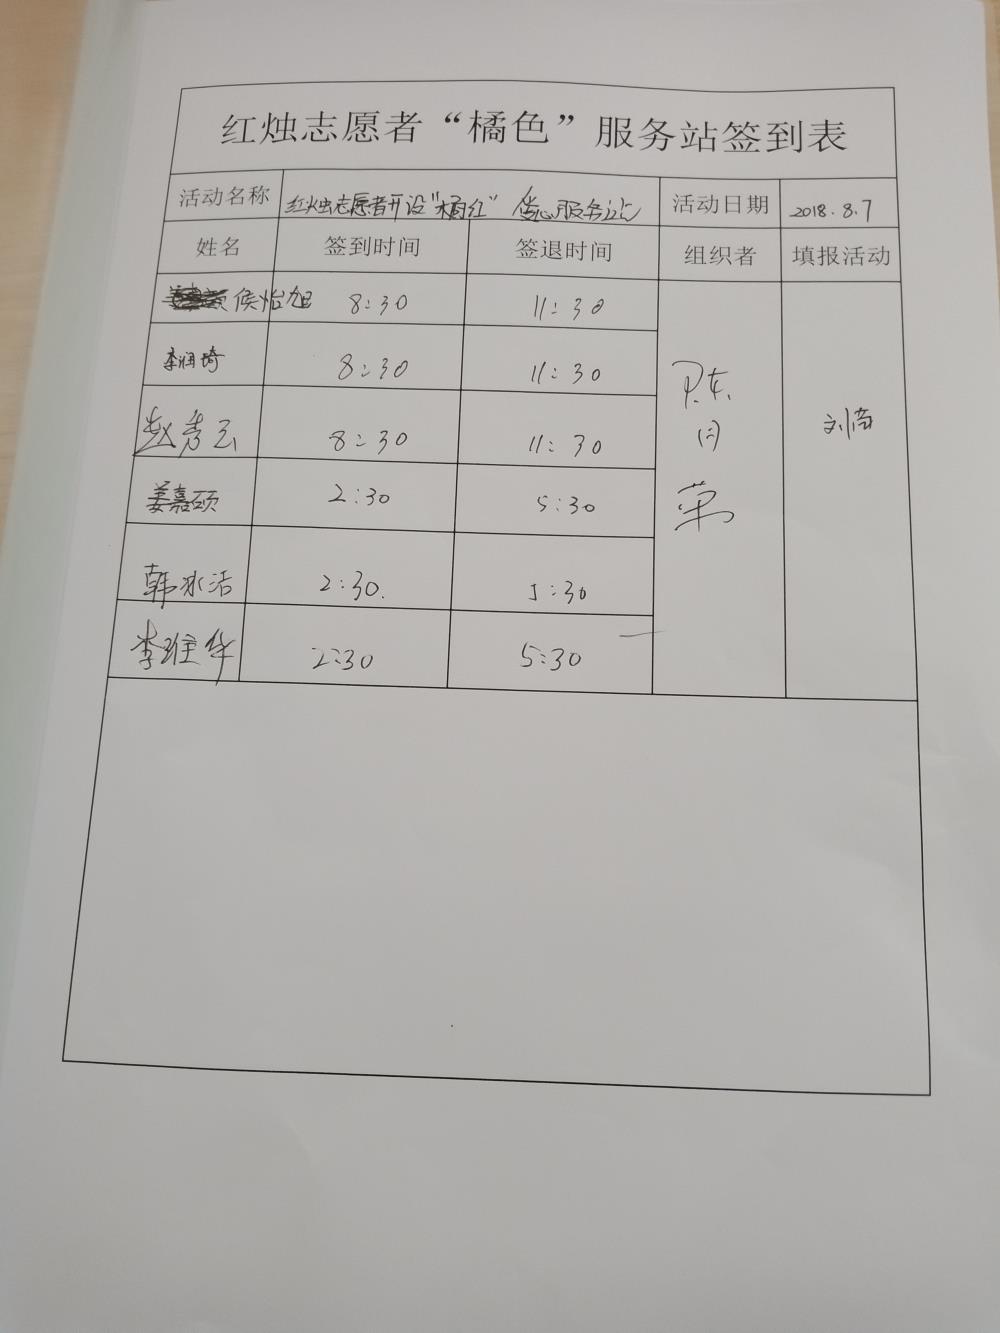 红烛志愿者“橘色”服务站签到表
活动名称 红烛志愿者开设“橘红”爱心服务站 活动日期 2018.8.7
姓名 签到时间 签退时间 组织者 填报活动
候怡旭 8:30 11:30
李润琦 8:30 11:30
赵秀云 8:30 11:30
姜嘉硕 2:30 5:30
韩冰洁 2:30. 5:30
李维华 2:30 5:30
陈
月
荣